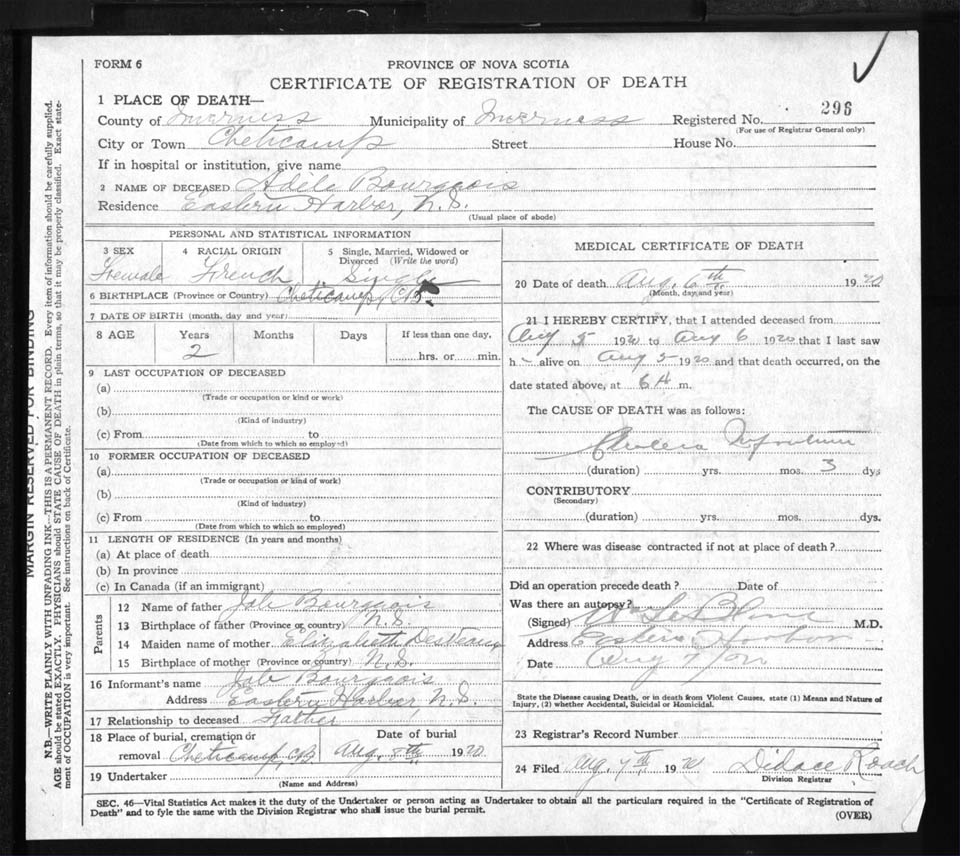 FORM 6
PROVINCE OF NOVA SCOTIA
CERTIFICATE OF REGISTRATION OF DEATH
1 PLACE OF DEATH—
County of Inverness Municipality of Inverness Registered No. 296
(For use of Registrar General only)
City or Town Cheticamp Street House No.
If in hospital or institution, give name
2 NAME OF DECEASED Adile Bourgeois
Residence Eastern Harbor, N.S.
(Usual place of abode)
PERSONAL AND STATISTICAL INFORMATION
3 SEX 4 RACIAL ORIGIN 5 Single, Married, Widowed or
Divorced (Write the word)
Female French Single
6 BIRTHPLACE (Province or Country) Cheticamp, C.B.
7 DATE OF BIRTH (month, day and year)
8 AGE Years Months Days If less than one day,
2 hrs. or min.
9 LAST OCCUPATION OF DECEASED
(a)
(Trade or occupation or kind or work)
(b)
(Kind of industry)
(c) From to
(Date from which to which so employed)
10 FORMER OCCUPATION OF DECEASED
(a)
(Trade or occupation or kind of work)
(b)
(Kind of industry)
(c) From to
(Date from which to which so employed)
11 LENGTH OF RESIDENCE (In years and months)
(a) At place of death
(b) In province
(c) In Canada (if an immigrant)
Parents
12 Name of father Job Bourgeois
13 Birthplace of father (Province or country) N.S.
14 Maiden name of mother Elizabeth
15 Birthplace of mother (Province or country) N.S.
16 Informant's name Job Bourgeois
Address Eastern Harbor, N.S.
17 Relationship to deceased Father
18 Place of burial, cremation or Date of burial
removal Cheticamp, CB Aug. 8th 1920
19 Undertaker
(Name and Address)
MEDICAL CERTIFICATE OF DEATH
20 Date of death Aug. 6th 1920
(Month, day and year)
21 I HEREBY CERTIFY, that I attended deceased from
Aug 5 1920 to Aug 6 1920 that I last saw
h alive on Aug 5 1920 and that death occurred, on the
date stated above, at 6 A m.
The CAUSE OF DEATH was as follows:
Cholera Infantum
(duration) yrs. mos. 3 dys
CONTRIBUTORY
(Secondary)
(duration) yrs. mos. dys.
22 Where was disease contracted if not at place of death?
Did an operation precede death? Date of
Was there an autopsy?
(Signed) Wm LeBlanc M.D.
Address Eastern Harbor
Date Aug 7/20
State the Disease causing Death, or in death from Violent Causes, state (1) Means and Nature of
Injury, (2) whether Accidental, Suicidal or Homicidal.
23 Registrar's Record Number
24 Filed Aug. 7th 1920 Didace Roach
Division Registrar
SEC. 46—Vital Statistics Act makes it the duty of the Undertaker or person acting as Undertaker to obtain all the particulars required in the "Certificate of Registration of
Death" and to fyle the same with the Division Registrar who shall issue the burial permit.
(OVER)
MARGIN RESERVED FOR BINDING
N.B.—WRITE PLAINLY WITH UNFADING INK—THIS IS A PERMANENT RECORD. Every item of information should be carefully supplied.
AGE should be stated EXACTLY. PHYSICIANS should STATE CAUSE OF DEATH in plain terms, so that it may be properly classified. Exact state-
ment of OCCUPATION is very important. See instructions on back of Certificate.